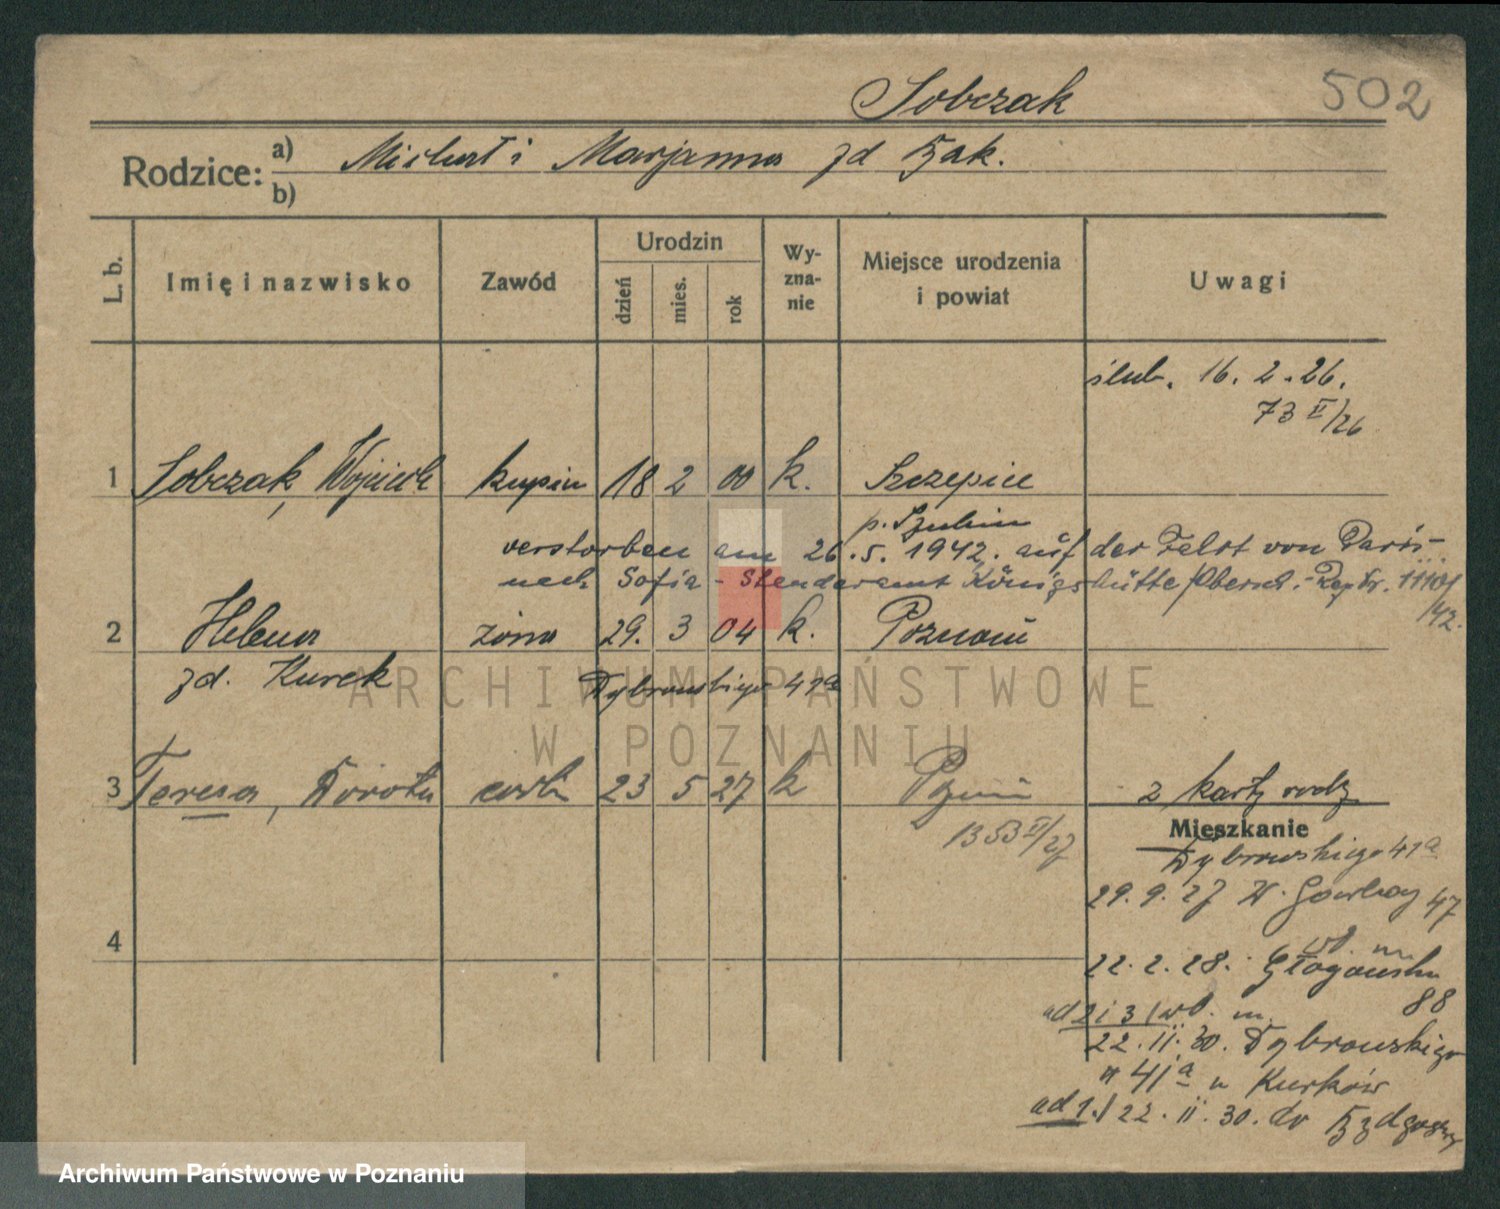 Sobczak
502
Rodzice: a) Michał i Marjanna zd Bąk.
b)
L. b.
Imię i nazwisko
Zawód
Urodzin
dzień
mies.
rok
Wy-
zna-
nie
Miejsce urodzenia
i powiat
Uwagi
ślub. 16. 2. 26.
73 II/26
1 Sobczak, Wojciech kupiec 18 2 00 k. Szczepice
p. Szubin
verstorben am 26.5.1942. auf der von Paris
nach Sofia - Standesamt Königshütte/Obersch.
/42.
2 Helena żona 29. 3 04 k. Poznań
zd. Kurek
Dąbrowskiego 41a
ARCHIWUM PAŃSTWOWE
W POZNANIU
3 Teresa, Dorota córka 23 5 27 k Poznań
1353 V/27
2 karty rodz
Mieszkanie
Dąbrowskiego 41a
29. 9. 27 47
wł. m.
22. 2. 28. Głogowska
88
ad 2 i 3/ wł. m.
22. II. 30. Dąbrowskiego
41a u Kurków
4
ad 1./ 22. II. 30. do Bydgoszczy
Archiwum Państwowe w Poznaniu